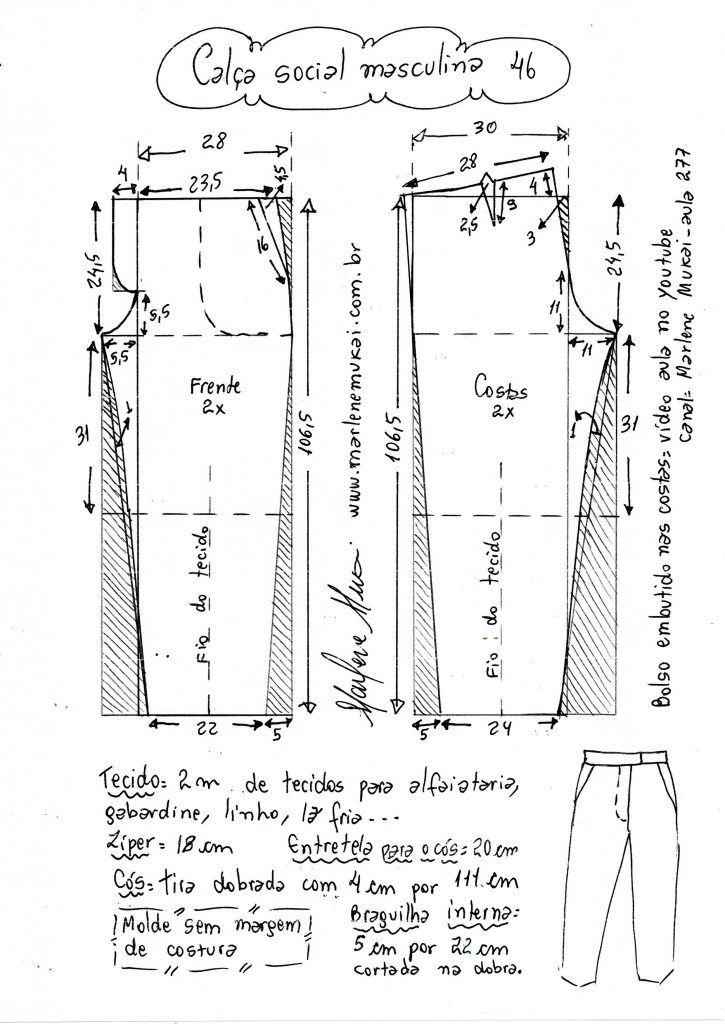 Calça social masculina 46
28
4
23,5
4,5
16
24,5
5,5
5,5
31
1
Frente
2x
106,5
Fio do tecido
22
5
www.marlenemukai.com.br
Marlene Mukai
30
28
4
2,5
9
3
24,5
11
11
Costas
2x
106,5
1
31
Fio do tecido
5
24
Bolso embutido nas costas= vídeo aula no Youtube
canal= Marlene Mukai-aula 277
Tecido= 2m de tecidos para alfaiataria,
gabardine, linho, lã fria...
Zíper= 18 cm
Entretela para o cós= 20 cm
Cós= tira dobrada com 4 cm por 111 cm
Molde sem margem
de costura
Braguilha interna=
5 cm por 22 cm
cortada na dobra.